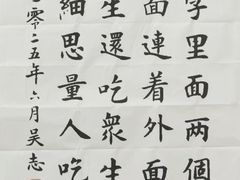 字里面两個
面連着外面
生還吃衆生
細思量人吃
零二五年六月吴志